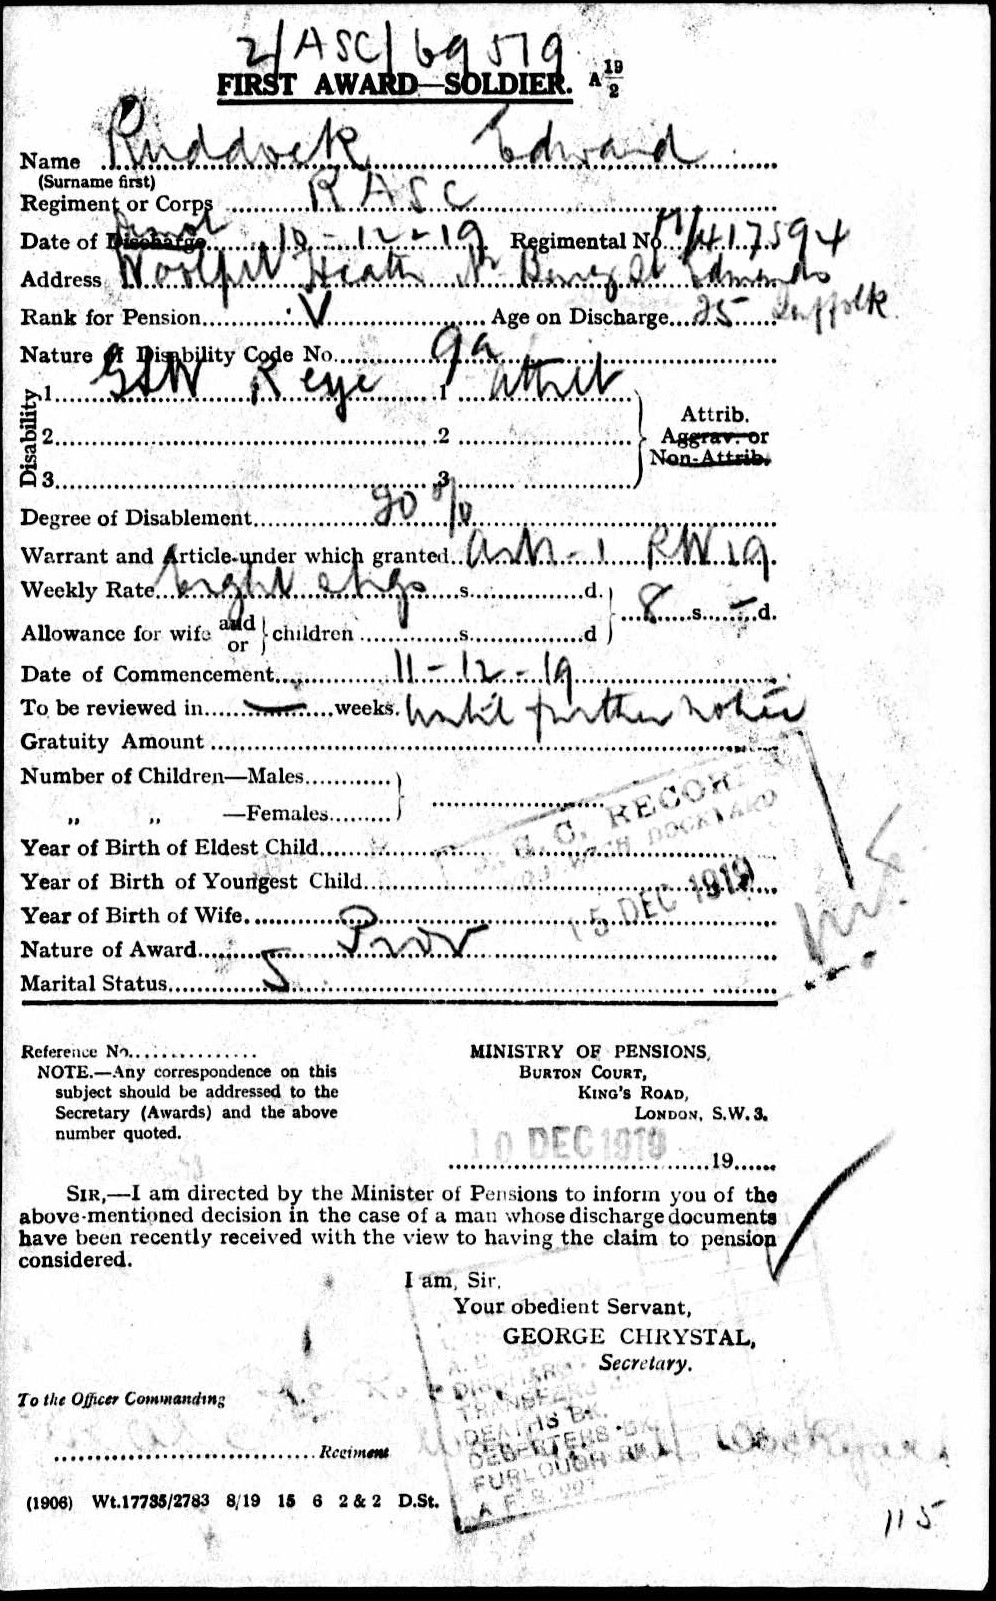 2/ASC/69579
FIRST AWARD—SOLDIER. A 19/2
Name Ruddock Edward
(Surname first)
Regiment or Corps RASC
Date of Discharge Demob 10-12-19 Regimental No M/417594
Address Woolpit Heath Nr Bury St Edmunds
Suffolk
Rank for Pension V Age on Discharge 25
Nature of Disability Code No. 9a
Disability
1 GSW R eye 1 attrib
2 2
3 3
Attrib.
Aggrav. or
Non-Attrib.
Degree of Disablement 20%
Warrant and Article under which granted Art - 1 RW 19
Weekly Rate eight shgs s. d. 8 s. – d.
Allowance for wife and or children s. d
Date of Commencement 11-12-19
To be reviewed in — weeks. Until further notice
Gratuity Amount
Number of Children—Males
" " —Females
Year of Birth of Eldest Child
Year of Birth of Youngest Child
Year of Birth of Wife
15 DEC 1919
Nature of Award Prov
Marital Status S
Reference No.
NOTE.—Any correspondence on this
subject should be addressed to the
Secretary (Awards) and the above
number quoted.
MINISTRY OF PENSIONS,
BURTON COURT,
KING'S ROAD,
LONDON, S.W.3.
10 DEC 1919
19
SIR,—I am directed by the Minister of Pensions to inform you of the
above-mentioned decision in the case of a man whose discharge documents
have been recently received with the view to having the claim to pension
considered.
I am, Sir,
Your obedient Servant,
GEORGE CHRYSTAL,
Secretary.
TRANSFERS
DEATHS BK.
DESERTERS BK
FURLOUGH BK
To the Officer Commanding
Regiment
(1906) Wt.17735/2783 8/19 15 6 2 & 2 D.St.
115